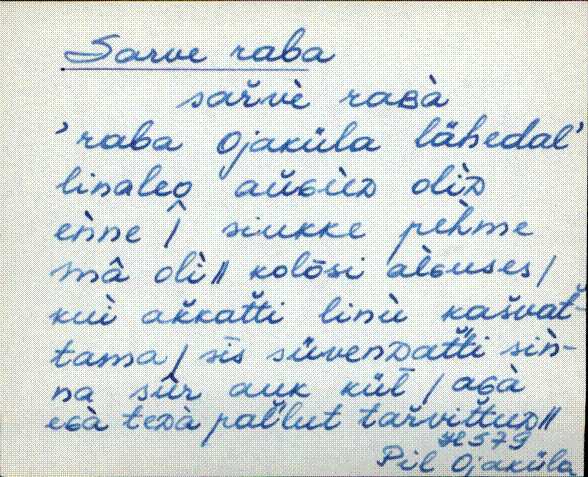 Sarve raba
sařvè raʙà
'raba Ojaküla lähedal'
linaleo aŭɢùᴅ olìᴅ
eǹne / siukke pèhme
mâ olì // kolōsi aìɢuses /
kuì aǩkaťti linù kašvať-
tama / sīs süvenᴅaťti siǹ-
na sūr auk küĺ / aɢà
eɢà teᴅà paľlut tařviťtuᴅ //
H 579
Pil Ojaküla